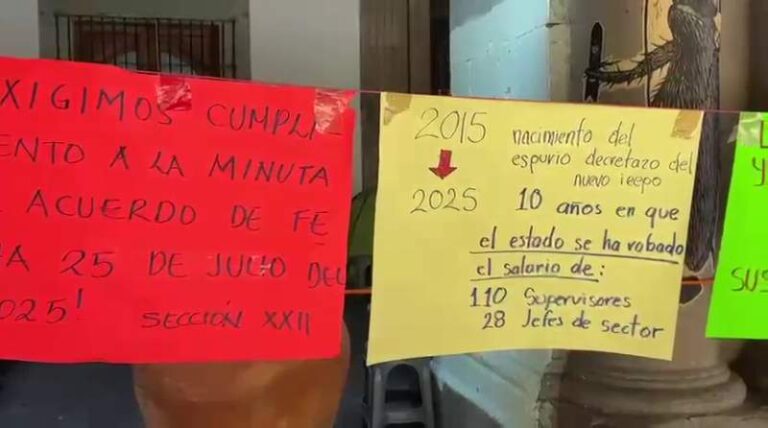 XIGIMOS CUMPLI-
ENTO A LA MINUTA
ACUERDO DE FE
A 25 DE JULIO DEL
2025! SECCIÓN XXII
2015 nacimiento del
espurio decretazo del
nuevo ieepo
2025 10 años en que
el estado se ha robado
el salario de:
110 Supervisores
28 Jefes de sector
Y
SUS